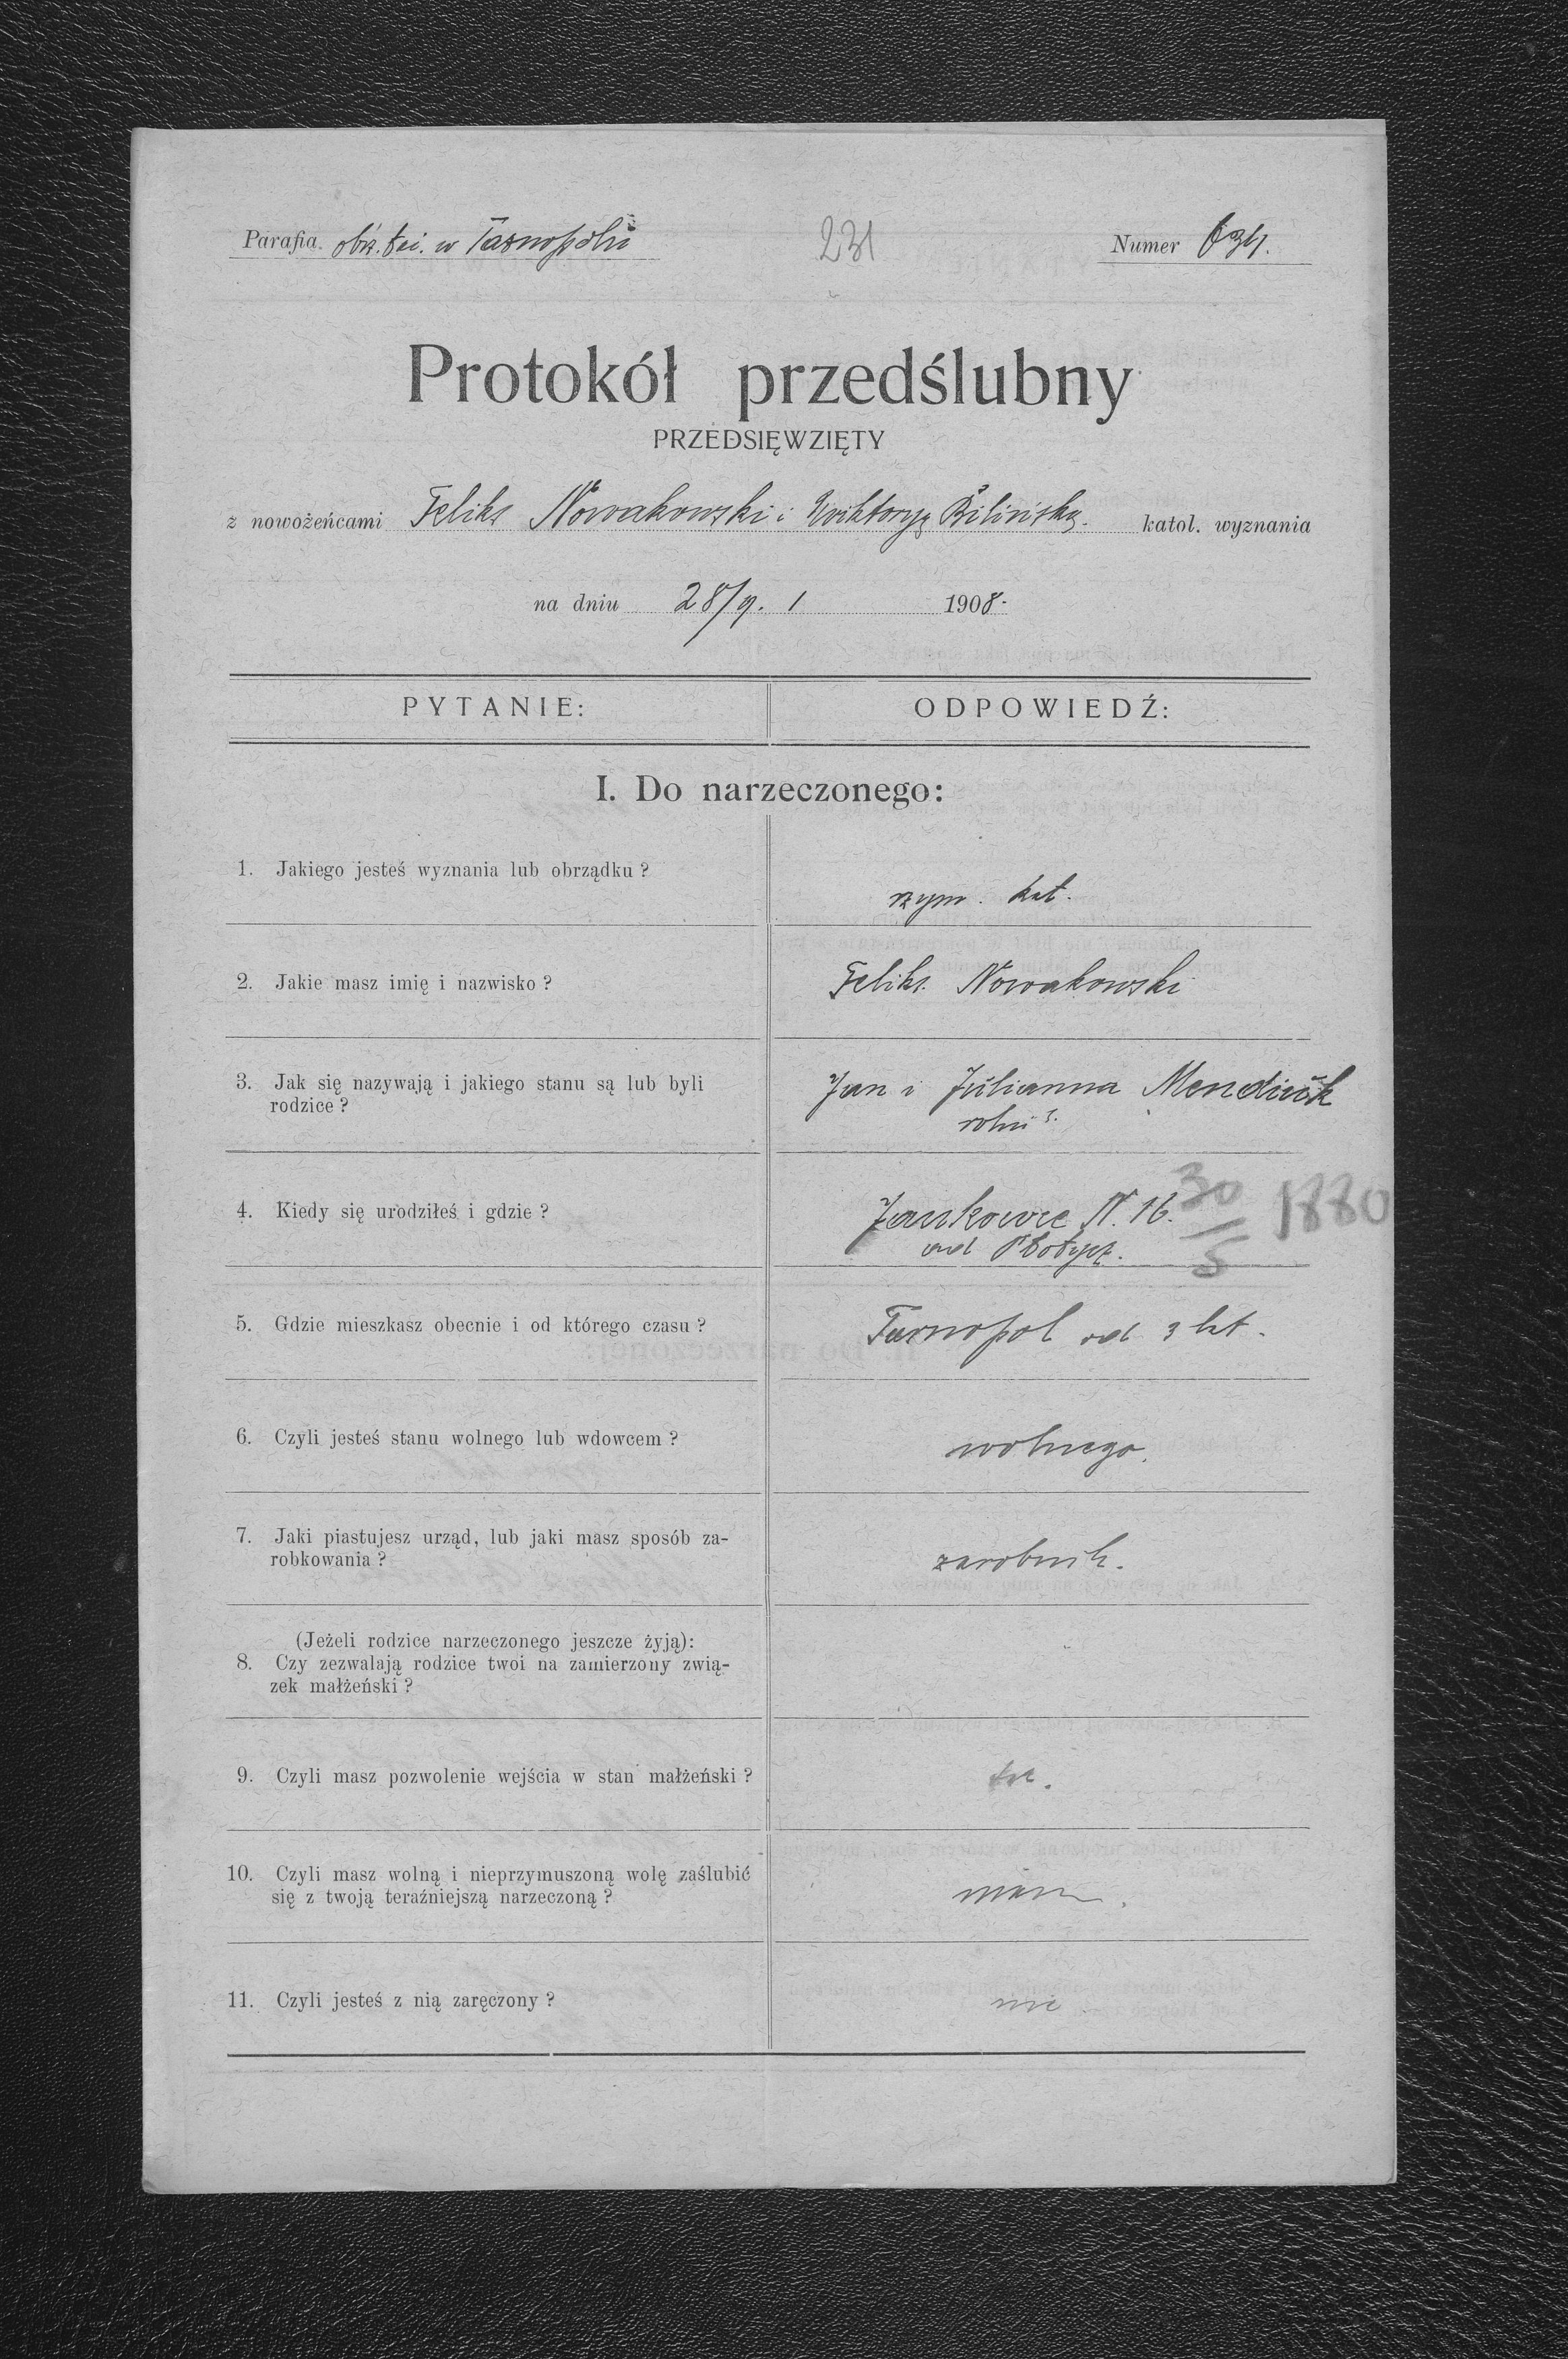 Parafia obrz. łać. w Tarnopolu 231 Numer 634.
Protokół przedślubny
PRZEDSIĘWZIĘTY
z nowożeńcami Feliks Nowakowski i Wiktoryą Bilińską. katol. wyznania
na dniu 28/9. 1 1908.
PYTANIE: ODPOWIEDŹ:
I. Do narzeczonego:
1. Jakiego jesteś wyznania lub obrządku?
rzym. kat.
2. Jakie masz imię i nazwisko? Feliks Nowakowski
3. Jak się nazywają i jakiego stanu są lub byli Jan i Julianna Mendiuk
rodzice?
4. Kiedy się urodziłeś i gdzie? Jankowce N. 16. 30/5 1880
ad
5. Gdzie mieszkasz obecnie i od którego czasu? Tarnopol od 3 lat.
6. Czyli jesteś stanu wolnego lub wdowcem? wolnego.
7. Jaki piastujesz urząd, lub jaki masz sposób za-
robkowania? zarobnik.
(Jeżeli rodzice narzeczonego jeszcze żyją):
8. Czy zezwalają rodzice twoi na zamierzony zwią-
zek małżeński?
9. Czyli masz pozwolenie wejścia w stan małżeński? tak.
10. Czyli masz wolną i nieprzymuszoną wolę zaślubić
się z twoją teraźniejszą narzeczoną? mam.
11. Czyli jesteś z nią zaręczony? nie